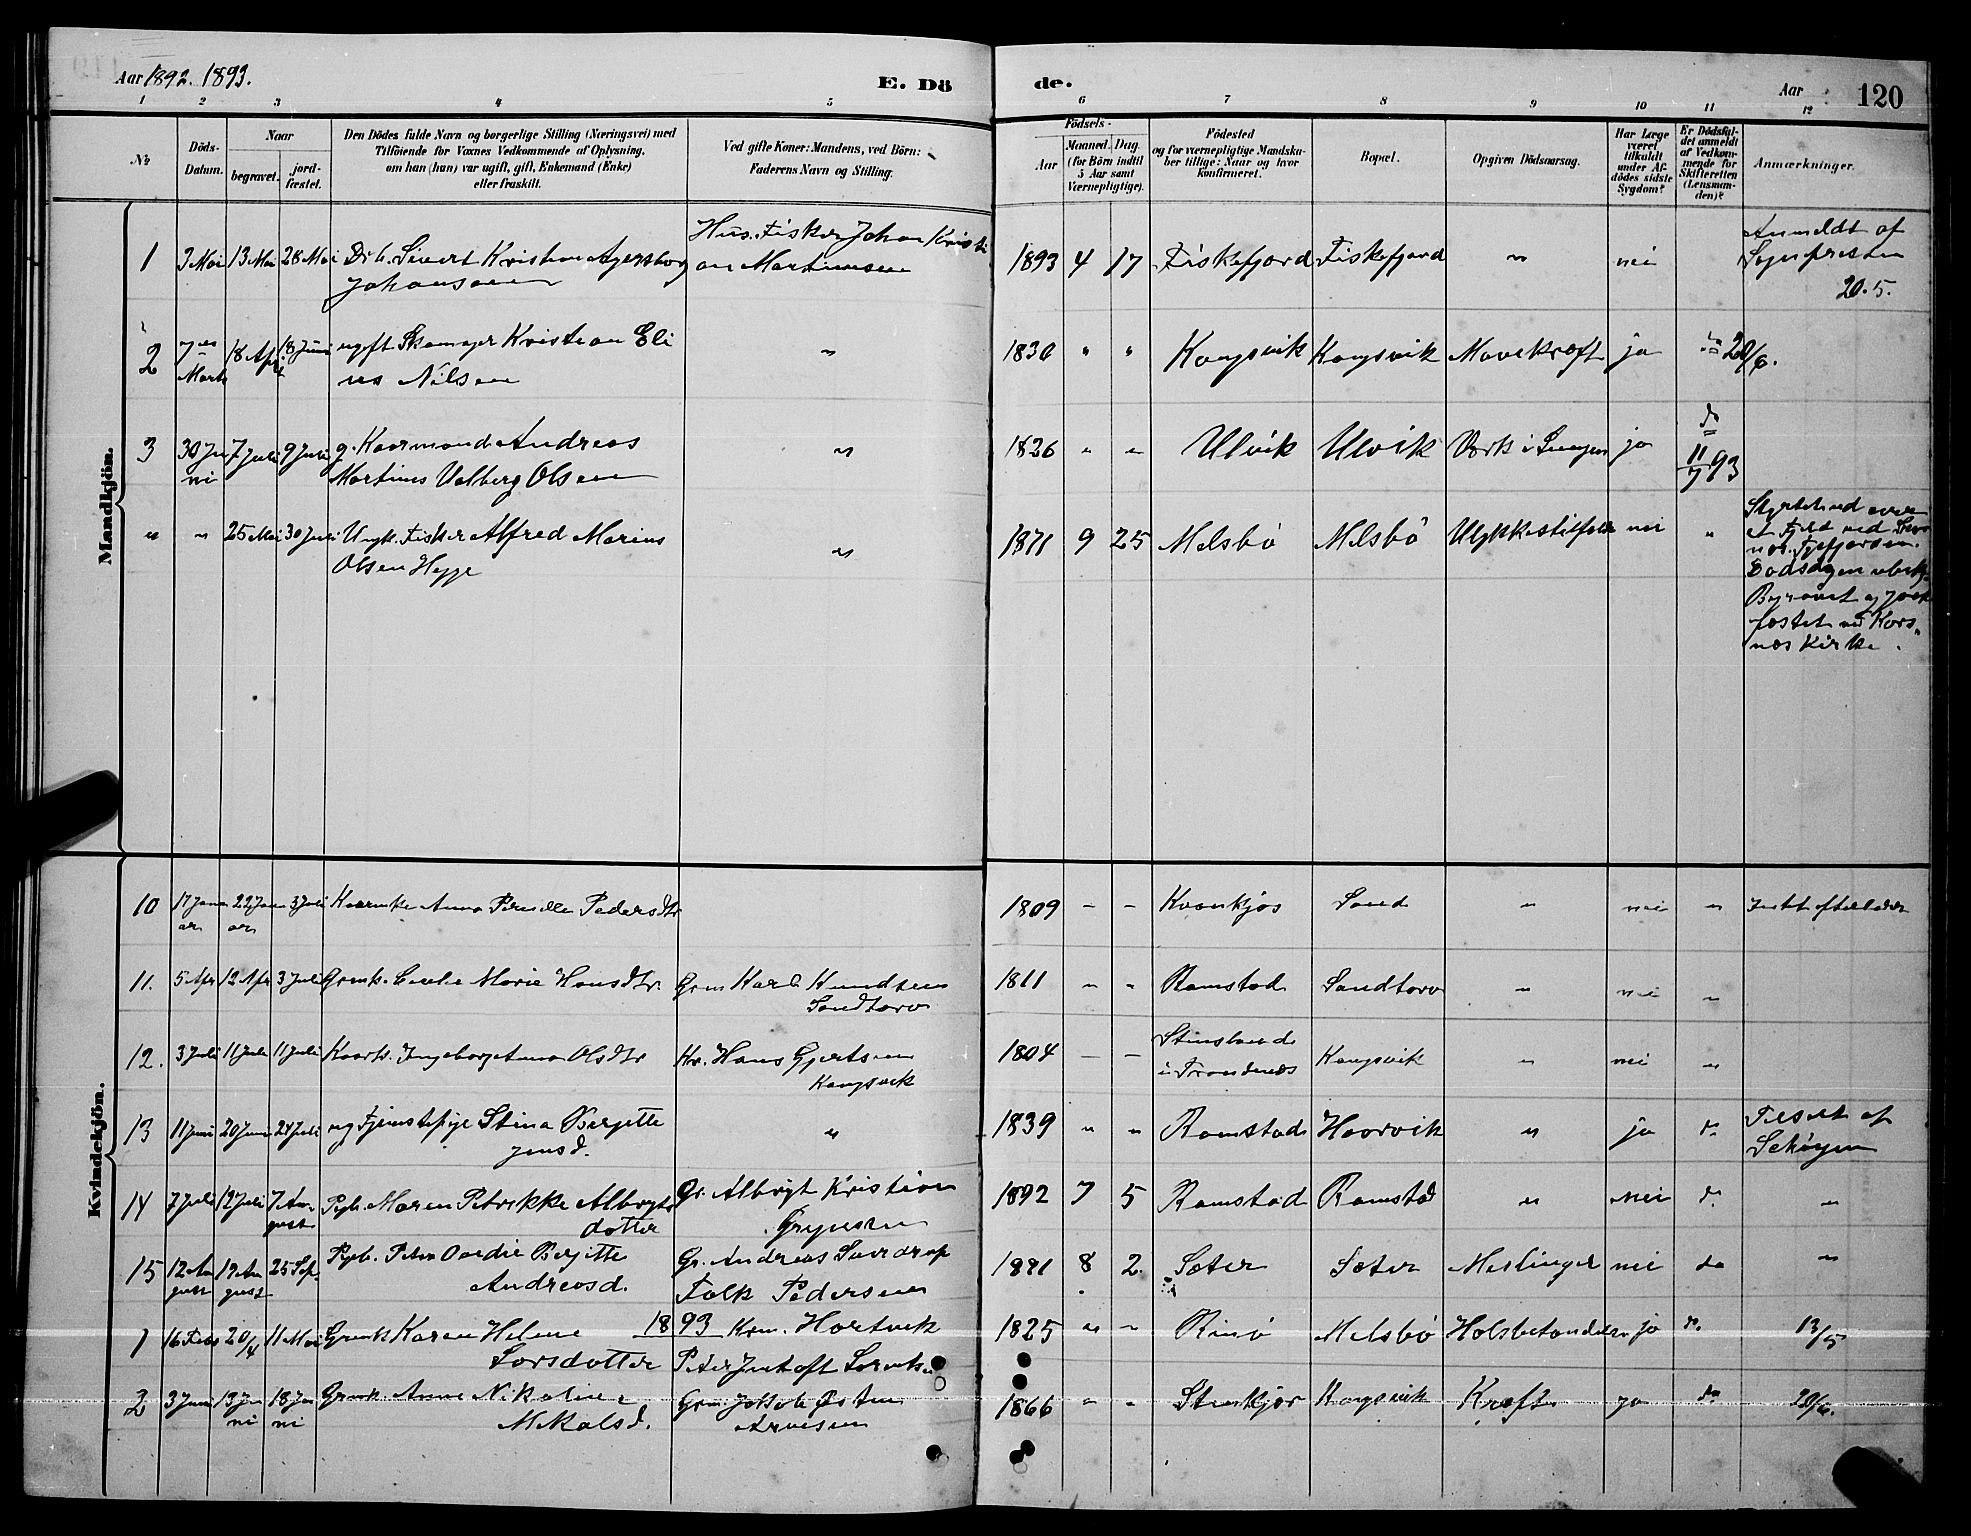 Aar 1892. 1893.
E. Dö
de.
Aar
120
1 2 3 4 5 6 7 8 9 10 11 12
No
Döds-
Datum.
Naar
begravet.
jord-
fæstet.
Den Dödes fulde Navn og borgerlige Stilling (Næringsvei) med
Tilföiende for Voxnes Vedkommende af Oplysning,
om han (hun) var ugift, gift, Enkemand (Enke)
eller fraskilt.
Ved gifte Koner: Mandens, ved Börn:
Faderens Navn og Stilling.
Födsels-
Aar
Maaned. Dag
(for Börn indtil
5 Aar samt
Værnepligtige).
Födested
og for værnepligtige Mandska-
ber tillige: Naar og hvor
konfirmeret.
Bopæl.
Opgiven Dödsaarsag.
Har Læge
været
tilkaldt
under Af-
dödes sidste
Sygdom?
Er Dödsfal-
det anmeldt
af Vedkom-
mende for
Skifteretten
(Lensman-
den)?
Anmærkninger.
Mandkjön.
1 3 Mai 13 Mai 28 Mai Drb. Sivert Kristian
Johansen
Hus. Fisker Johan Kristi
an Martinusen
1893 4 17 Fiskefjord Fiskefjord " nei
Anmeldt af
Sognepresten
20.5.
2 7 Marts 18 April 18 Juni ugift Skomager Kristian Eli
as Nilsen " 1830 " " Kongsvik Kongsvik Mavekræft ja da 20/6.
3 30 Ju
ni 7 Juli 9 Juli g. Kaarmand Andreas
Martinus Valberg Olsen " 1826 " " Ulvik Ulvik Værk i Lungen ja da
11/7 93
" " 25 Mai 30 Juli Ungk. Fisker Alfred Marius
Olsen Hegge " 1871 9 25 Melsbö Melsbö Ulykkestilfælde nei "
Styrtet ud over
et Fjeld ved
Dødsdagen ubek.
Begravet og jord
fæstet ved Kors-
næs Kirke.
Kvindekjön.
10 17 Janu
ar 22 Janu
ar 3 Juli Kaarenke Anna Pernille Pedersdtr
1809 - - Kvankjos Sand " nei "
11. 5 Apr 12 Apr 3 Juli Grmk. Marie Hansdtr.
Grm Karl Knudsen
Sandtorv
1811 " " Ramstad Sandtorv " nei "
12. 3 Juli 11 Juli 11 Juli Kaark. Ingeborg Anna Olsdtr
Kr. Hans Gjertsen
Kongsvik
1804 - -
i Trondenæs Kongsvik " nei "
13 11 Juni 20 Juni 24 Juli ug Tjenestepige Stina Bergitte
Jensd. " 1839 " " Ramstad Haarvik " ja da Tilseet af
14 7 Juli 12 Juli 7 Au-
gust Pgb. Maren Petrikke Albrigts
dotter
Gr. Albrigt Kristian
1892 7 5 Ramstad Ramstad " nei da "
15 12 Au
gust 19 Au
gust 25 Sep. Pgb. Petra Oardie Bergitte
Andreasd.
Gr. Andreas Sverdrup
Falk Pedersen
1891 8 2 Sæter Sæter Meslinger nei da "
1893
1 16 Febr 20/4 11 Mai Grmk Karen Helene
Larsdotter
Krm. Hartvik
Peter Justoft Lorentsen
1825 " " Rinö Melsbö Halsbetændelse ja da 13/5
2 3 Juni 13 Ju
ni 18 Ju
ni Grmk. Anna Nikoline
Mikalsd.
Grm. Jakob Østen
Arnesen
1866 " " Stenkjær Kongsvik Kræft ja da 20/6.